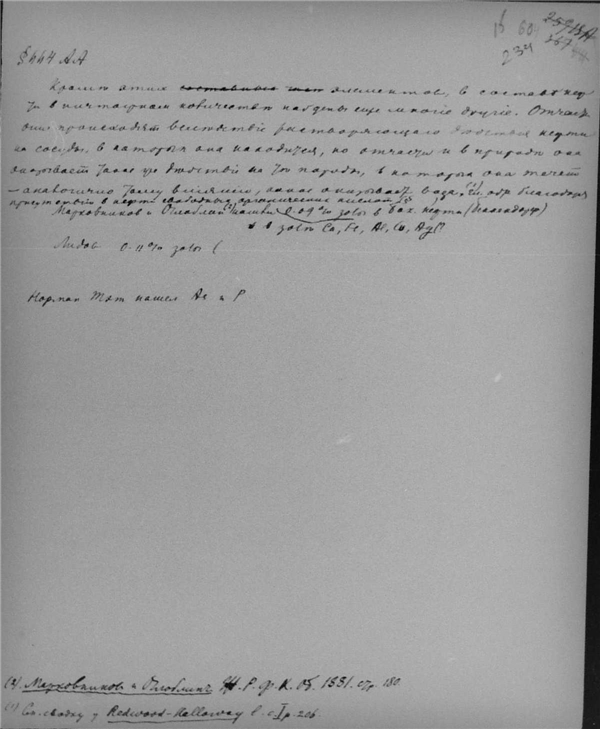 § 664 AA
Кроме этих составных элементов, в составе неф
ти в ничтожном количестве найдены еще многие другие. Отчасти
они происходят вследствие растворяющего действия нефти
на сосуды, в которых она находится, но отчасти и в природе она
оказывает такое же действие на те породы, в которых она течет
– аналогично тому влиянию, какое оказывает вода, благодаря
присутствию в нефти свободных органических кислот
Марковников и Оглоблин нашли 0.09% золы в бак. нефти
в золе Ca, Fe, Al, Cu, Ag
Лидов 0.11% золы (
Норман Тэт нашел As и P
(2) Марковников и Оглоблин Ж. Р. Ф. Х. Об. 1881. стр. 180.
(1) См. сводку у Redwood–Holloway l. c I p. 206